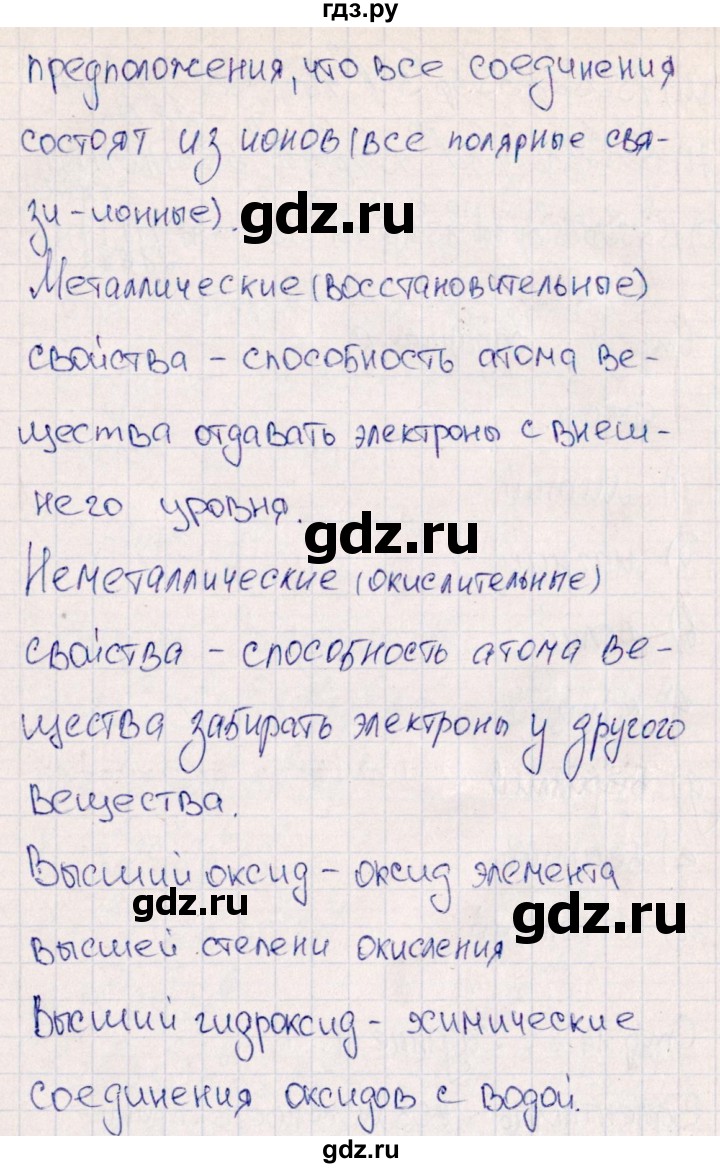 гдз.ру
предположения, что все соединения
состоят из ионов (все полярные свя-
зи - ионные).
gdz.ru
Металлические (восстановительные)
свойства - способность атома ве-
щества отдавать электроны с внеш-
него уровня.
gdz.ru
Неметаллические (окислительные)
свойства - способность атома ве-
щества забирать электроны у другого
вещества.
Высший оксид - оксид элемента
gdz.ru
gdz.ru
высшей степени окисления
Высший гидроксид - химические
соединения оксидов с водой.
gdz.ru